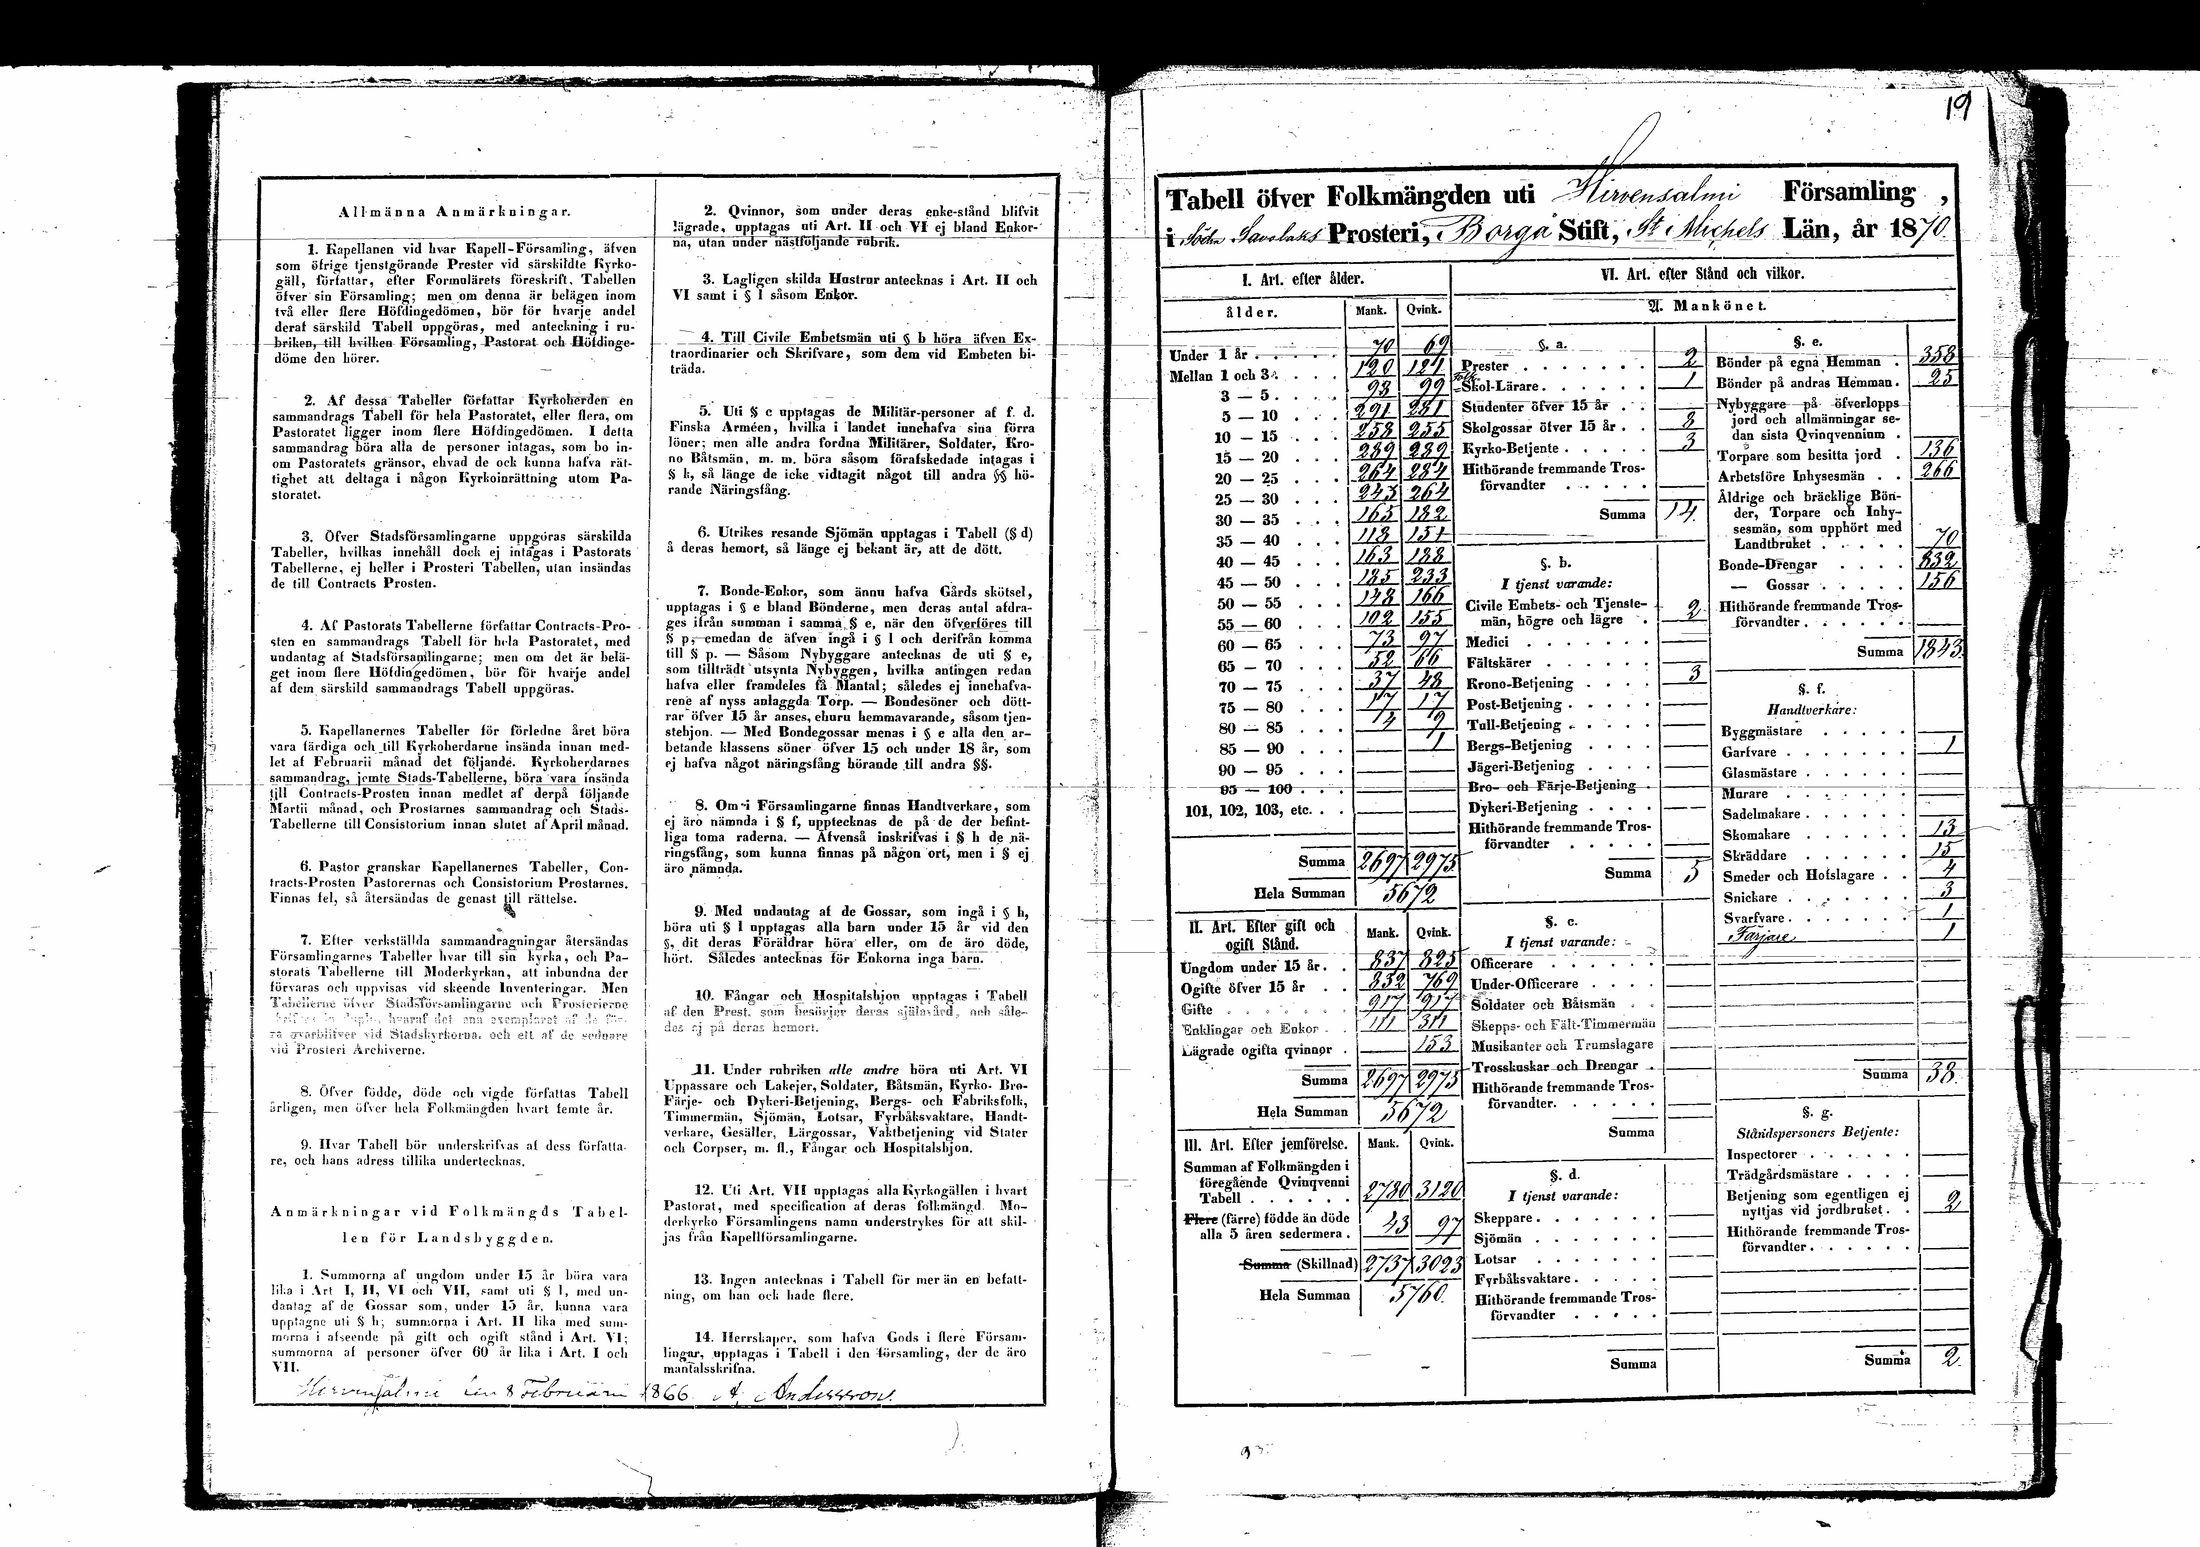 Allmänna Anmärkningar.
1. Kapellanen vid hvar Kapell-Församling, äfven
som öfrige tjenstgörande Prester vid särskildte Kyrko-
gäll, författar, efter Formulärets föreskrift, Tabellen
öfver sin Församling; men om denna är belägen inom
två eller flere Höfdingedömen, bör för hvarje andel
deraf särskild Tabell uppgöras, med anteckning i ru-
briken, till hvilken Församling, Pastorat och Höfdinge-
döme den hörer.
2. Af dessa Tabeller författar Kyrkoherden en
sammandrags Tabell för hela Pastoratet, eller flera, om
Pastoratet ligger inom flere Höfdingedömen. I detta
sammandrag böra alla de personer intagas, som bo in-
om Pastoratets gränsor, ehvad de ock kunna hafva rät-
tighet att deltaga i någon Kyrkoinrättning utom Pa-
storatet.
3. Öfver Stadsförsamlingarne uppgöras särskilda
Tabeller, hvilkas innehåll dock ej intagas i Pastorats
Tabellerne, ej heller i Prosteri Tabellen, utan insändas
de till Contracts Prosten.
4. Af Pastorats Tabellerne författar Contracts-Pro-
sten en sammandrags Tabell för hela Pastoratet, med
undantag af Stadsförsamlingarne; men om det är belä-
get inom flere Höfdingedömen, bör för hvarje andel
af dem särskild sammandrags Tabell uppgöras.
5. Kapellanernes Tabeller för förledne året böra
vara färdiga och till Kyrkoherdarne insända innan med-
let af Februarii månad det följande. Kyrkoherdarnes
sammandrag, jemte Stads-Tabellerne, böra vara insända
till Contracts-Prosten innan medlet af derpå följande
Martii månad, och Prostarnes sammandrag och Stads-
Tabellerne till Consistorium innan slutet af April månad.
6. Pastor granskar Kapellanernes Tabeller, Con-
tracts-Prosten Pastorernas och Consistorium Prostarnes.
Finnas fel, så återsändas de genast till rättelse.
7. Efter verkställda sammandragningar återsändas
Församlingarnes Tabeller hvar till sin kyrka, och Pa-
storats Tabellerne till Moderkyrkan, att inbundna der
förvaras och uppvisas vid skeende Inventeringar. Men
Tabellerne öfver Stadsförsamlingarne och Prosterierne
skrifvas in duplo, hvaraf det ena exemplaret af de för-
ra qvarblifver vid Stadskyrkorna, och ett af de sednare
vid Prosteri Archiverne.
8. Öfver födde, döde och vigde författas Tabell
årligen, men öfver hela Folkmängden hvart femte år.
9. Hvar Tabell bör underskrifvas af dess författa-
re, och hans adress tillika undertecknas.
Anmärkningar vid Folkmängds Tabel-
len för Landsbyggden.
1. Summorna af ungdom under 15 år böra vara
lika i Art I, II, VI och VII, samt uti § l, med un-
dantag af de Gossar som, under 15 år, kunna vara
upptagne uti § h; summorna i Art. II lika med sum-
morna i afseende på gift och ogift stånd i Art. VI;
summorna af personer öfver 60 år lika i Art. I och
VII.
2. Qvinnor, som under deras enke-stånd blifvit
lägrade, upptagas uti Art. II och VI ej bland Enkor-
na, utan under nästföljande rubrik.
3. Lagligen skilda Hustrur antecknas i Art. II och
VI samt i § l såsom Enkor.
4. Till Civile Embetsmän uti § b höra äfven Ex-
traordinarier och Skrifvare, som dem vid Embeten bi-
träda.
5. Uti § c upptagas de Militär-personer af f. d.
Finska Arméen, hvilka i landet innehafva sina förra
löner; men alle andra fordna Militärer, Soldater, Kro-
no Båtsmän, m. m. böra såsom förafskedade intagas i
§ k, så länge de icke vidtagit något till andra §§ hö-
rande Näringsfång.
6. Utrikes resande Sjömän upptagas i Tabell (§ d)
å deras hemort, så länge ej bekant är, att de dött.
7. Bonde-Enkor, som ännu hafva Gårds skötsel,
upptagas i § e bland Bönderne, men deras antal afdra-
ges ifrån summan i samma § e, när den öfverföres till
§ p, emedan de äfven ingå i § l och derifrån komma
till § p. — Såsom Nybyggare antecknas de uti § e,
som tillträdt utsynta Nybyggen, hvilka antingen redan
hafva eller framdeles få Mantal; således ej innehafva-
rene af nyss anlaggda Torp. — Bondesöner och dött-
rar öfver 15 år anses, ehuru hemmavarande, såsom tjen-
stehjon. — Med Bondegossar menas i § e alla den ar-
betande klassens söner öfver 15 och under 18 år, som
ej hafva något näringsfång hörande till andra §§.
8. Om i Församlingarne finnas Handtverkare, som
ej äro nämnda i § f, upptecknas de på de der befint-
liga toma raderna. — Äfvenså inskrifvas i § h de nä-
ringsfång, som kunna finnas på någon ort, men i § ej
äro nämnda.
9. Med undantag af de Gossar, som ingå i § h,
böra uti § l upptagas alla barn under 15 år vid den
§, dit deras Föräldrar höra eller, om de äro döde,
hört. Således antecknas för Enkorna inga barn.
10. Fångar och Hospitalshjon upptagas i Tabell
af den Prest, som besörjer deras själavård, och såle-
des ej på deras hemort.
11. Under rubriken alle andre böra uti Art. VI
Uppassare och Lakejer, Soldater, Båtsmän, Kyrko- Bro-
Färje- och Dykeri-Betjening, Bergs- och Fabriksfolk,
Timmermän, Sjömän, Lotsar, Fyrbåksvaktare, Handt-
verkare, Gesäller, Lärgossar, Vaktbetjening vid Stater
och Corpser, m. fl., Fångar och Hospitalshjon.
12. Uti Art. VII upptagas alla Kyrkogällen i hvart
Pastorat, med specification af deras folkmängd. Mo-
derkyrko Församlingens namn understrykes för att skil-
jas från Kapellförsamlingarne.
13. Ingen antecknas i Tabell för mer än en befatt-
ning, om han ock hade flere.
14. Herrskaper, som hafva Gods i flere Försam-
lingar, upptagas i Tabell i den församling, der de äro
mantalsskrifna.
Hirvensalmi den 8 Februarii 1866. A. Andersson.
19
Tabell öfver Folkmängden uti Hirvensalmi Församling,
i Södra Savolaks Prosteri, Borgå Stift, St Michels Län, år 1870.
I. Art. efter ålder.
ålder. Mank. Qvink.
Under 1 år . . . . . 70 69
Mellan 1 och 3 . . . . 120 121
3 — 5 . . . . 98 99
5 — 10 . . . 291 281
10 — 15 . . . 258 255
15 — 20 . . . 289 289
20 — 25 . . . 264 284
25 — 30 . . . 243 264
30 — 35 . . . 165 182
35 — 40 . . . 113 151
40 — 45 . . . 163 188
45 — 50 . . . 185 233
50 — 55 . . . 148 166
55 — 60 . . . 102 155
60 — 65 . . . 73 97
65 — 70 . . . 52 66
70 — 75 . . . 37 48
75 — 80 . . . 17 17
80 — 85 . . . 14 9
85 — 90 . . . 1
90 — 95 . . .
95 — 100 . . .
101, 102, 103, etc. . .
Summa 2697 2975
Hela Summan 5672
II. Art. Efter gift och
ogift Stånd. Mank. Qvink.
Ungdom under 15 år . . 837 825
Ogifte öfver 15 år . . 832 769
Gifte . . . . . . 917 917
Enklingar och Enkor . . 111 311
Lägrade ogifta qvinnor . 153
Summa 2697 2975
Hela Summan 5672
III. Art. Efter jemförelse. Mank. Qvink.
Summan af Folkmängden i
föregående Qvinqvenni
Tabell . . . . . . 2780 3120
Flere (färre) födde än döde
alla 5 åren sedermera . 43 97
Summa (Skillnad) 2737 3023
Hela Summan 5760.
VI. Art. efter Stånd och vilkor.
A. Mankönet.
§. a.
Prester . . . . . . . 2
Folk
Skol-Lärare . . . . . . 1
Studenter öfver 15 år . .
Skolgossar öfver 15 år . . 8
Kyrko-Betjente . . . . . 3
Hithörande fremmande Tros-
förvandter . . . . .
Summa 14.
§. b.
I tjenst varande:
Civile Embets- och Tjenste-
män, högre och lägre . 2
Medici . . . . . . .
Fältskärer . . . . . .
Krono-Betjening . . . . 3
Post-Betjening . . . . .
Tull-Betjening . . . . .
Bergs-Betjening . . . .
Jägeri-Betjening . . . .
Bro- och Färje-Betjening .
Dykeri-Betjening . . . .
Hithörande fremmande Tros-
förvandter . . . . .
Summa 5
§. c.
I tjenst varande:
Officerare . . . . . .
Under-Officerare . . . .
Soldater och Båtsmän . .
Skepps- och Fält-Timmermän
Musikanter och Trumslagare
Trosskuskar och Drengar .
Hithörande fremmande Tros-
förvandter . . . . . .
Summa
§. d.
I tjenst varande:
Skeppare . . . . . . .
Sjömän . . . . . . .
Lotsar . . . . . . .
Fyrbåksvaktare . . . . .
Hithörande fremmande Tros-
förvandter . . . . .
Summa
§. e.
Bönder på egna Hemman . 358
Bönder på andras Hemman . 25
Nybyggare på öfverlopps
jord och allmänningar se-
dan sista Qvinqvennium .
Torpare som besitta jord . 136
Arbetsföre Inhysesmän . . 266
Åldrige och bräcklige Bön-
der, Torpare och Inhy-
sesmän, som upphört med
Landtbruket . . . . . 70
Bonde-Drengar . . . . 832
— Gossar . . . . . 156
Hithörande fremmande Tros-
förvandter . . . . . .
Summa 1843.
§. f.
Handtverkare:
Byggmästare . . . . .
Garfvare . . . . . . 1
Glasmästare . . . . . .
Murare . . . . . . .
Sadelmakare . . . . . .
Skomakare . . . . . . 13
Skräddare . . . . . . 15
Smeder och Hofslagare . . 4
Snickare . . . . . . . 3
Svarfvare . . . . . . . 1
Färjare 1
Summa 38.
§. g.
Ståndspersoners Betjente:
Inspectorer . . . . . .
Trädgårdsmästare . . . .
Betjening som egentligen ej
nyttjas vid jordbruket . . 2
Hithörande fremmande Tros-
förvandter . . . . . .
Summa 2.